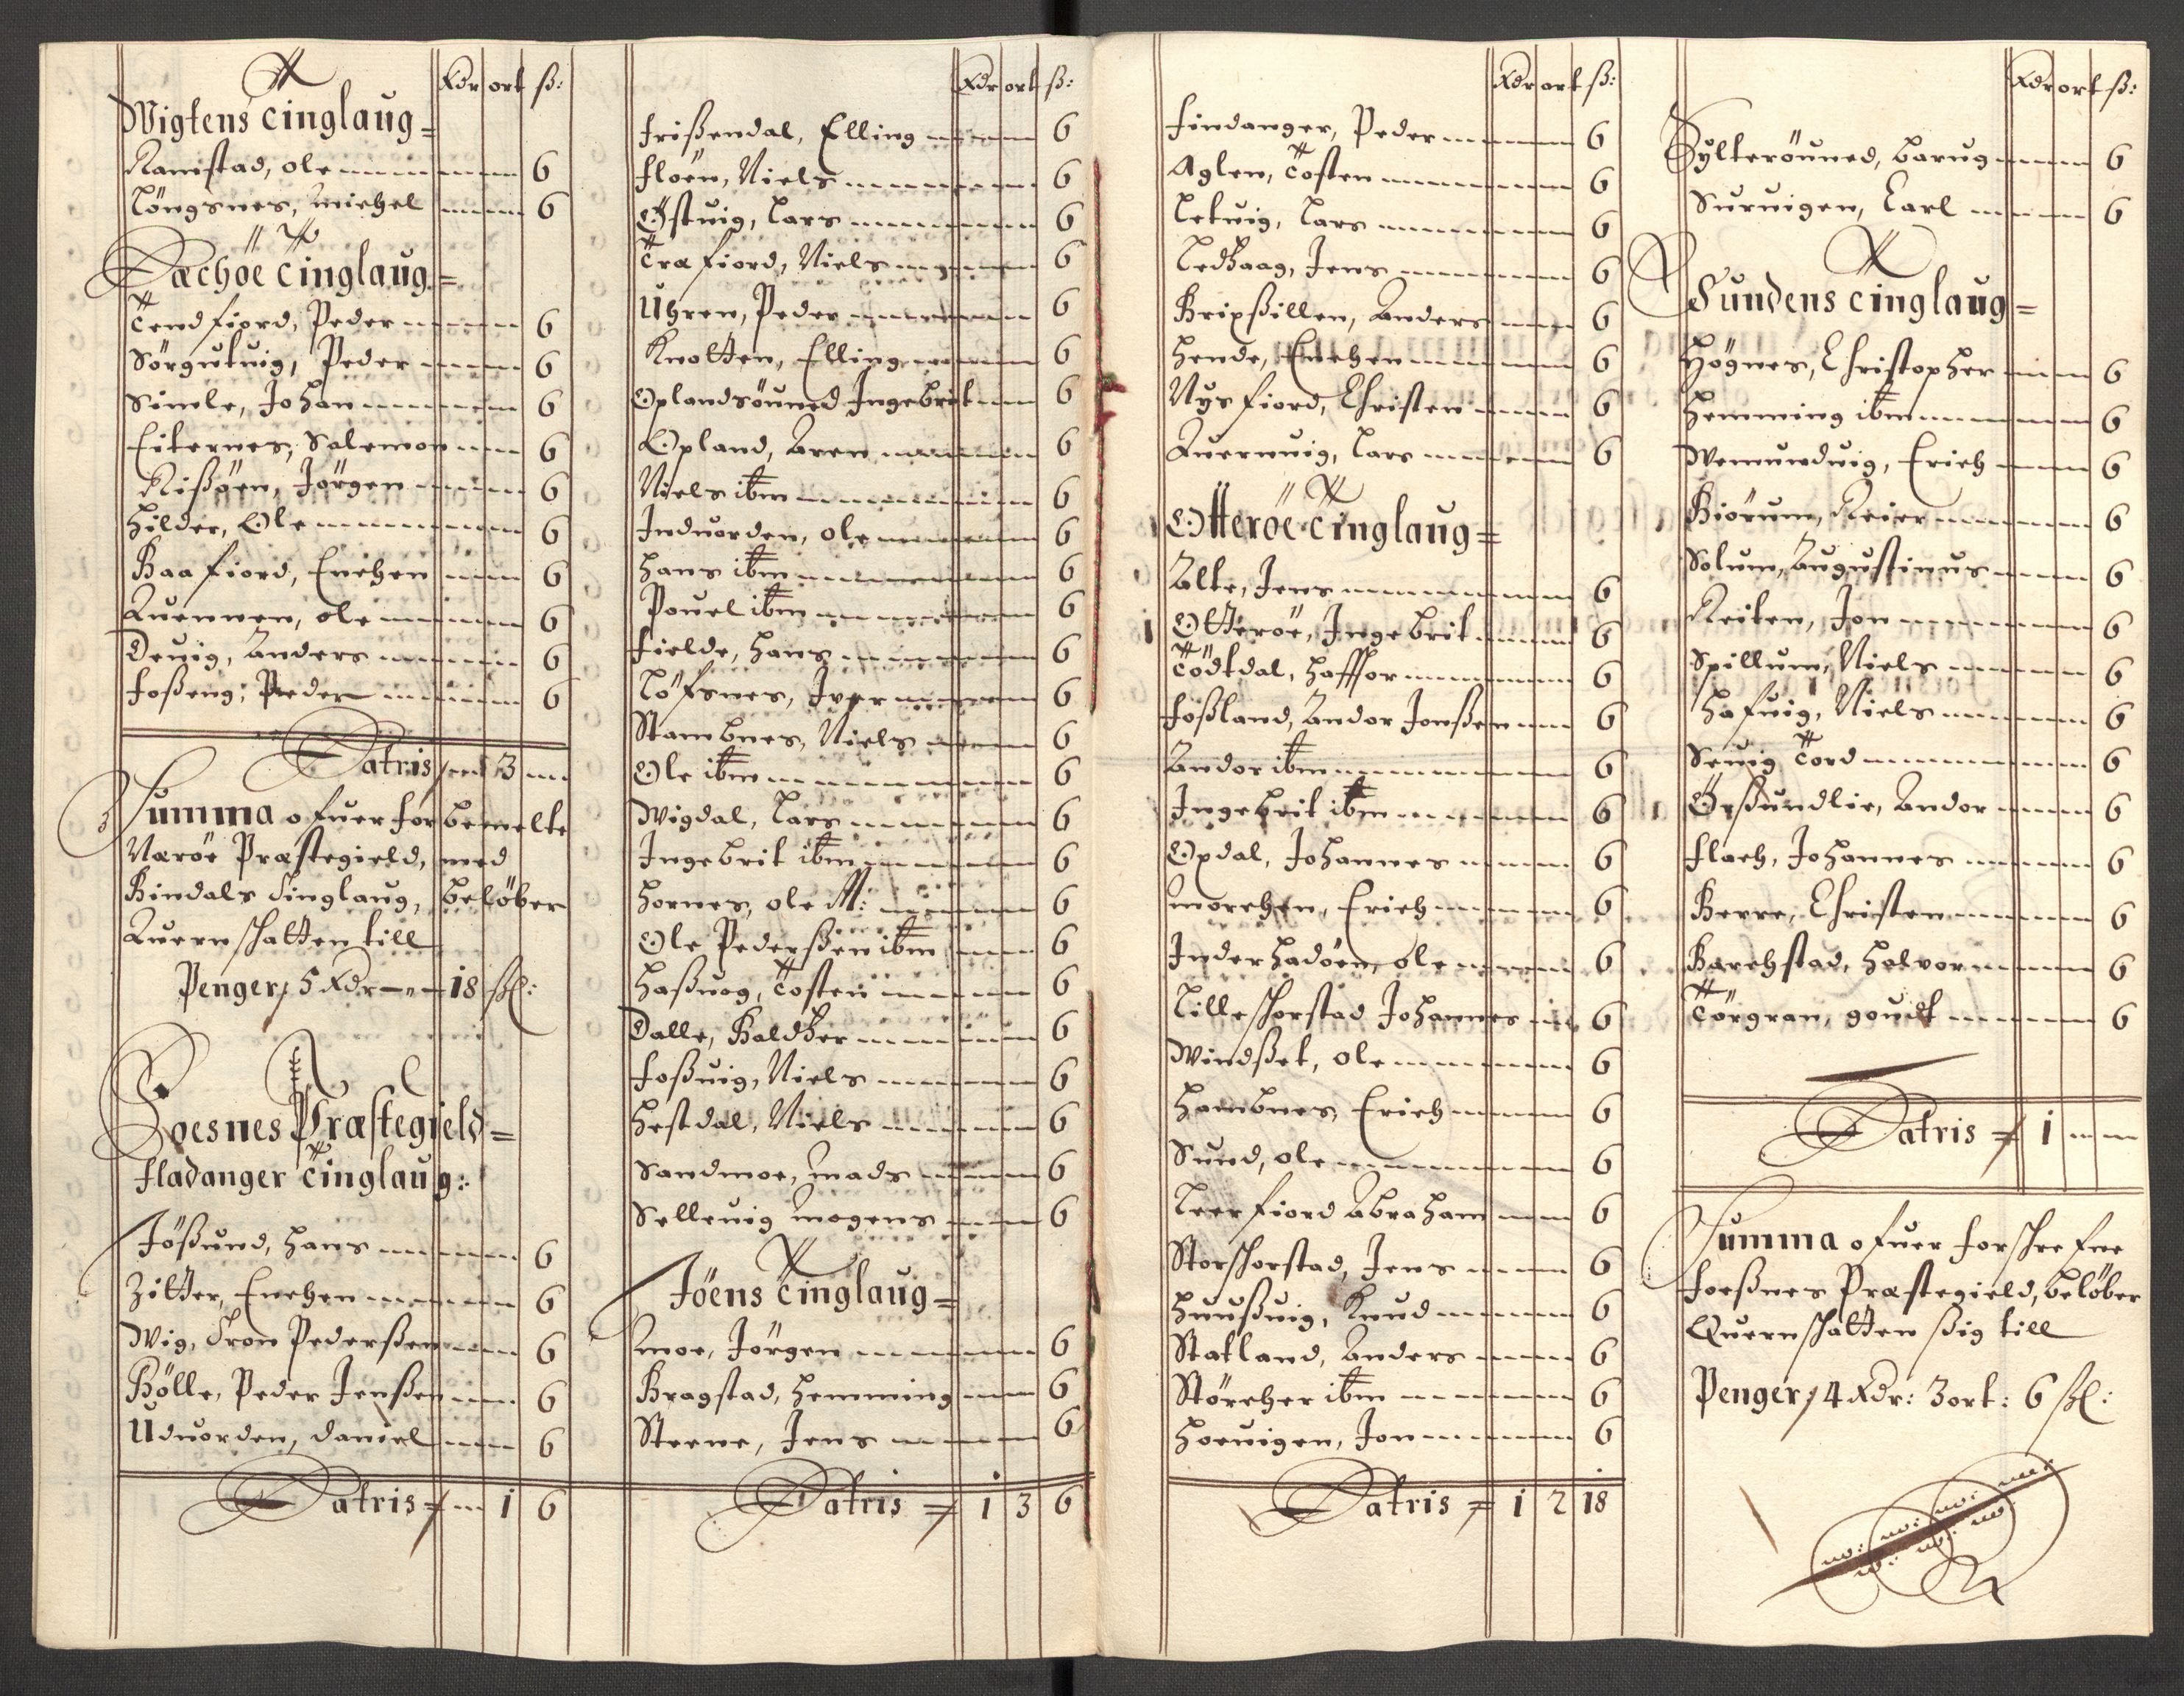 Rdr ort ß:
Wigtens Tinglaug =
Ramstad, ole 6
Löngsnes, Michel 6
Næröe Tinglaug =
Tendfiord, Peder 6
Sörgutuig, Peder 6
Simle, Johan 6
Eiternes, Salemon 6
Rißöen, Jörgen 6
Hilder, Ole 6
Kaafiord, Enchen 6
Quennen, ole 6
Devig, Anders 6
Foßeng, Peder 6
Latris 3
Summa ofuer forbemelte
Næröe Præstegield, med
Bindals Tinglaug, belöber
Quernskatten till
Penger, 5 Rdr — 18 ßl:
Foesnes Præstegield =
Fladanger Tinglaug :
Jößund, Hans 6
Zitter, Enchen 6
Wig, Tron Pederßen 6
Bölle, Peder Jenßen 6
Uduorden, Daniel 6
Latris = 1 6
Rdr ort ß:
Frißendal, Elling 6
Floen, Niels 6
Östuig, Lars 6
Træfiord, Niels 6
Uhren, Peder 6
Knotten, Elling 6
Oplandsöuned Ingebrit 6
Opland, Aren 6
Niels ibm 6
Induorden, ole 6
Hans ibm 6
Pouel ibm 6
Fielde, Hans 6
Löfsnes, Iver 6
Stambnes, Niels 6
Ole ibm 6
Wigdal, Lars 6
Ingebrit ibm 6
Hornes, ole M: 6
Ole Pederßen ibm 6
Haßuog, Tosten 6
Dalle, Baldzer 6
Foßuig, Niels 6
Hestdal, Niels 6
Sandmoe, Mads 6
Selleuig Mogens 6
Jöens Tinglaug =
Moe, Jörgen 6
Kragstad, Hemming 6
Steene, Jens 6
Latris = 1 3 6
Rdr ort ß:
Findanger, Peder 6
Aglen, Tosten 6
Letuig, Lars 6
Ledhaag, Jens 6
Bripßillen, Anders 6
Hende, Enchen 6
Nysfiord, Christen 6
Quernuig, Lars 6
Otteröe Tinglaug =
Alte, Jens 6
Otteröe, Ingebrit 6
Tödtdal, Haffor 6
Foßland, Andor Jonßen 6
Andor ibm 6
Ingebrit ibm 6
Opdal, Johannes 6
Morchen, Erich 6
Inderhadöen, ole 6
Lilleskorstad Johannes 6
Windßet, ole 6
Hambnes, Erich 6
Sund, ole 6
Leerfiord Abraham 6
Storskorstad, Jens 6
Huußuig, Knud 6
Statland, Anders 6
Störcher ibm 6
Hoeuigen, Jon 6
Latris = 1 2 18
Rdr ort ß:
Sylteröuned, Barug 6
Suruigen, Carl 6
Sundens Tinglaug =
Högnes, Christopher 6
Hemming ibm 6
Wemunduig, Erich 6
Biörum, Reier 6
Solum, Augustinus 6
Reiten, Jon 6
Spillum, Niels 6
Hafuig, Niels 6
Seuig Tord 6
Örßundlie, Andor 6
Flach, Johannes 6
Berre, Christen 6
Barchstad, Halvor 6
Törgran, goudt 6
Latris = 1
Summa ofuer forskrefne
Foeßnes Præstegield, belöber
Quernskatten ßig till
Penger, 4 Rdr: 3 ort: 6 ßl: